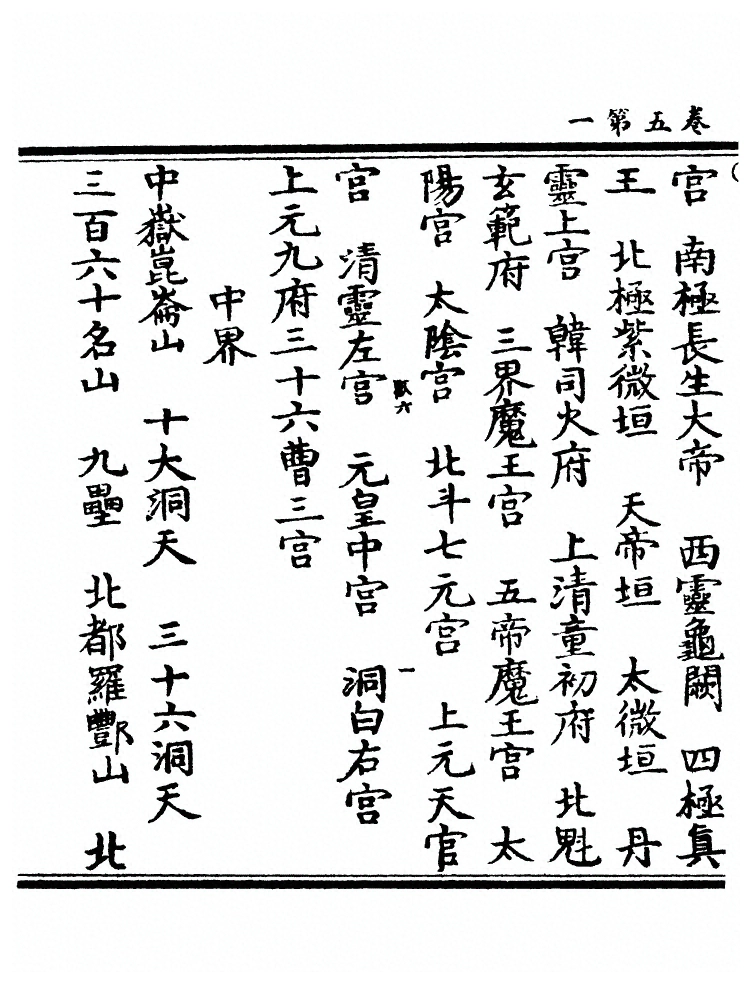 卷五第一
宫 南極長生大帝 西靈龜闕 四極眞
王 北極紫微垣 天帝垣 太微垣 丹
靈上宫 韓司火府 上清童初府 北魁
玄範府 三界魔王宫 五帝魔王宫 太
陽宫 太陰宫 北斗七元宫 上元天官
六 一
宫 清靈左宫 元皇中宫 洞白右宫
上元九府三十六曹三宫
中界
中嶽崑崙山 十大洞天 三十六洞天
三百六十名山 九壘 北都羅酆山 北